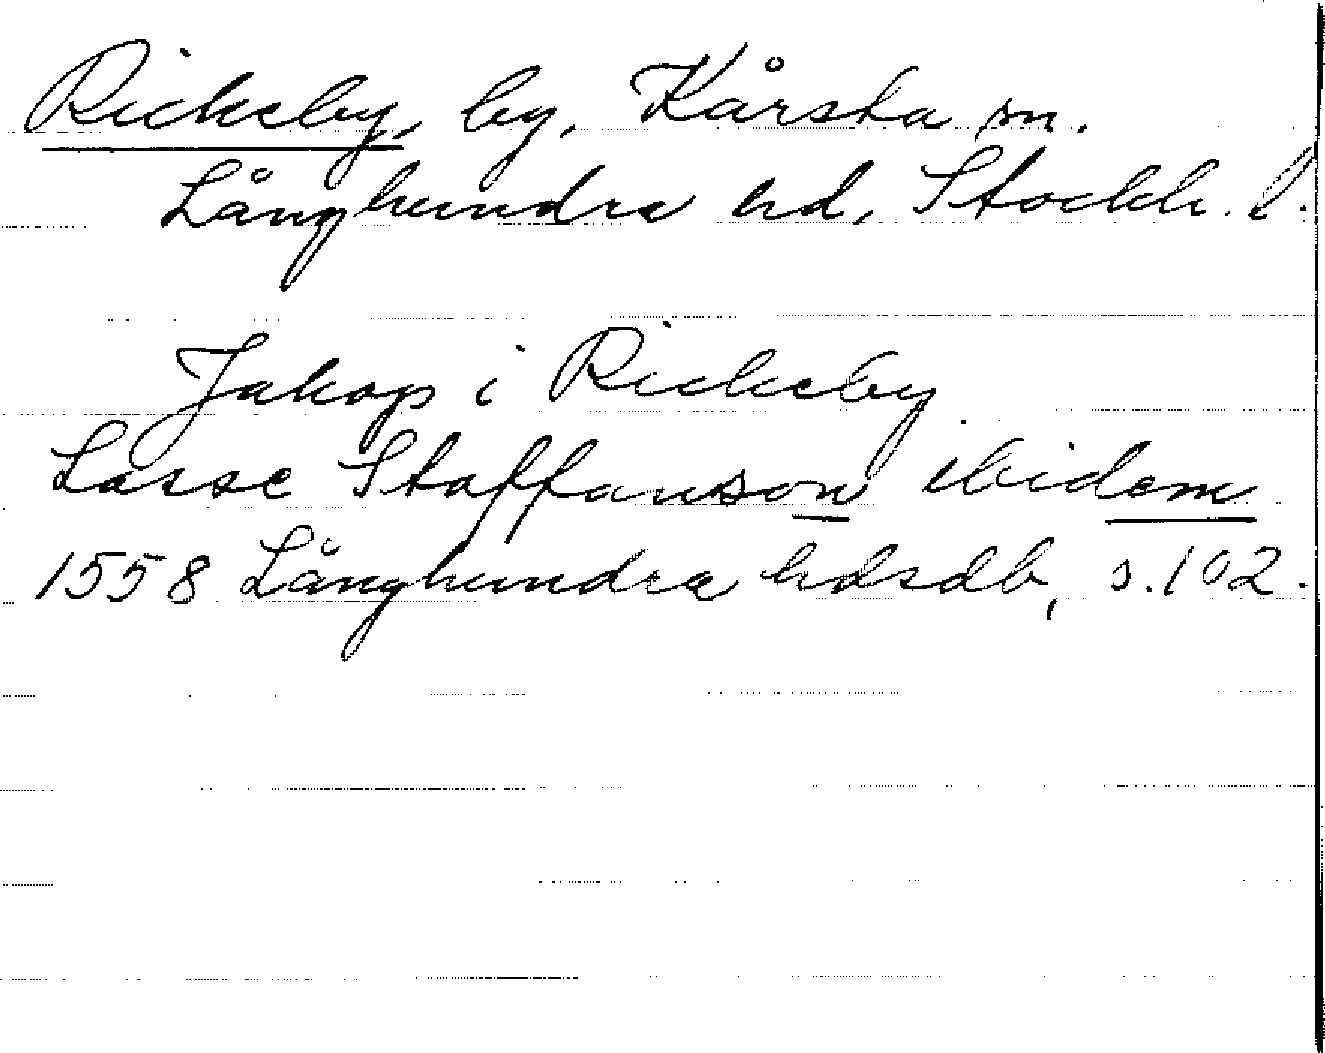 Rickeby, by, Kårsta sn.
Långhundra hd, Stockh. l.
Jakop i Rickeby
Lasse Staffanson ibidem
1558 Långhundra hdsdb, s. 102.